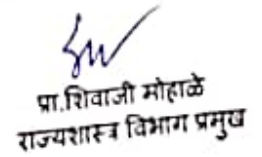 प्रा.शिवाजी मोहाळे
राज्यशास्त्र विभाग प्रमुख